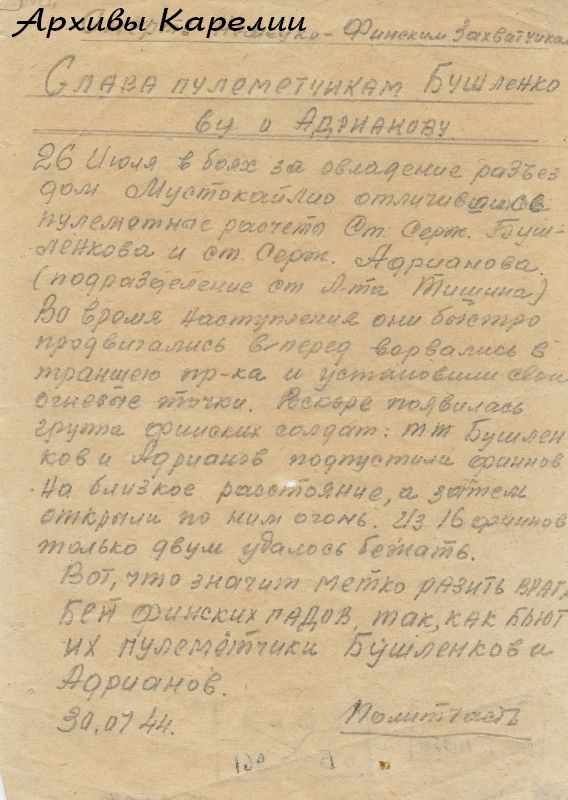 Архивы Карелии
Финским Захватчикам
Слава пулеметчикам Бушленко
ву и Адрианову
26 Июля в боях за овладение разъез
дом Мустокайлио отличившиеся
пулеметные расчеты Ст. Серж. Буш-
ленкова и ст. Серж. Адрианова.
(подразделение ст Л-та Тишина)
Во время наступления они быстро
продвигались вперед ворвались в
траншею пр-ка и установили свои
огневые точки. Вскоре появилась
группа финских солдат. тт Бушлен
ков и Адрианов подпустили финнов
на близкое расстояние, а затем
открыли по ним огонь. Из 16 финнов
только двум удалось бежать.
Вот, что значит метко разить врага
Бей финских гадов, так, как бьют
их пулеметчики Бушленков и
Адрианов.
30.07 44. Политчасть